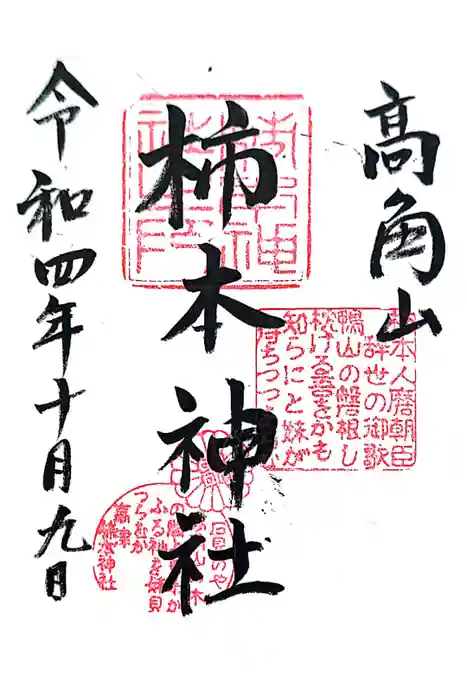 高角山
柿本人麿朝臣
辞世の御歌
鴨山の磐根し
枕ける吾をかも
知らにと妹が
待ちつつ
柿本神社
のや
山の木
ふる袖を妹見
つらむか
高津
柿本神社
令和四年十月九日